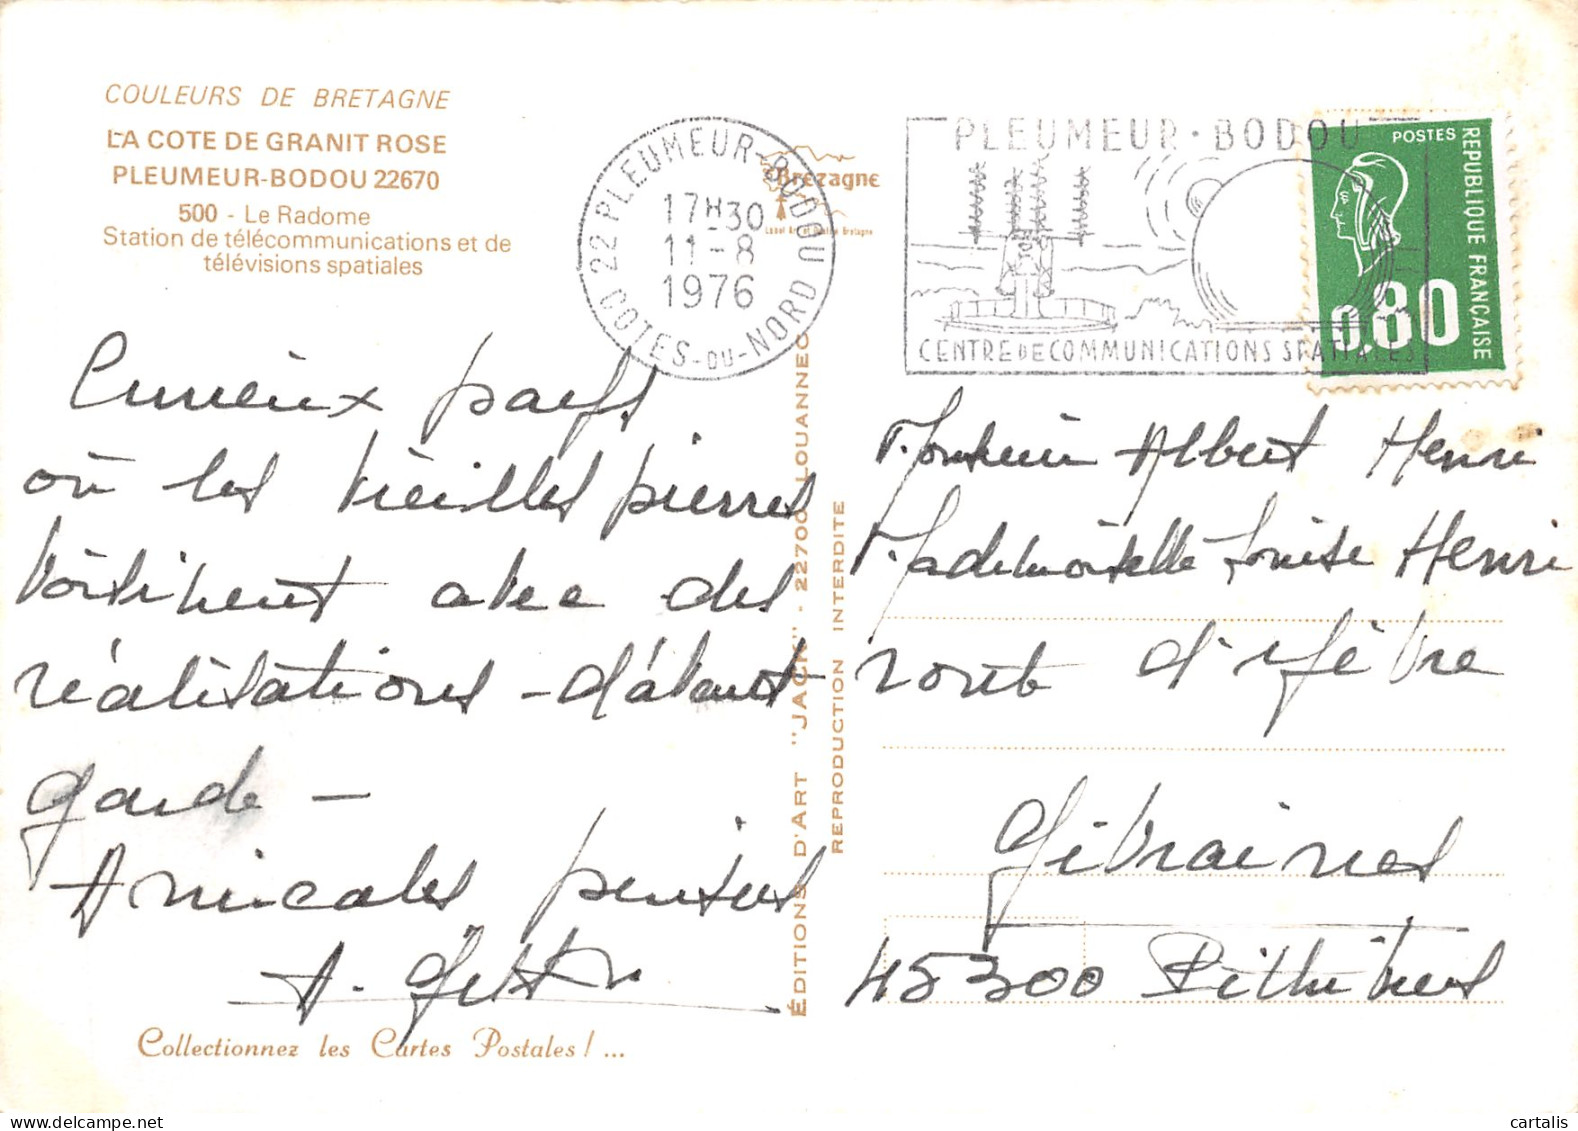 COULEURS DE BRETAGNE
LA COTE DE GRANIT ROSE
PLEUMEUR-BODOU 22670
500 - Le Radome
Station de télécommunications et de
télévisions spatiales
Curieux pays
où les vieilles pierres
voisinent avec des
réalisations - d'avant
garde -
Amicales pensées
A.
Collectionnez les Cartes Postales ! ...
22 PLEUMEUR-BODOU
17H30
11-8
1976
COTES-DU-NORD
Breizagne
Label Art et Tradition Bretagne
PLEUMEUR·BODOU
CENTRE DE COMMUNICATIONS SPATIALES
POSTES
REPUBLIQUE FRANÇAISE
0,80
ÉDITIONS D'ART "JACK" - 22700 LOUANNEC
REPRODUCTION INTERDITE
Monsieur Albert Henri
Mademoiselle Louise Henri
route d'Yèvre
Givraines
45300 Pithiviers
cartalis